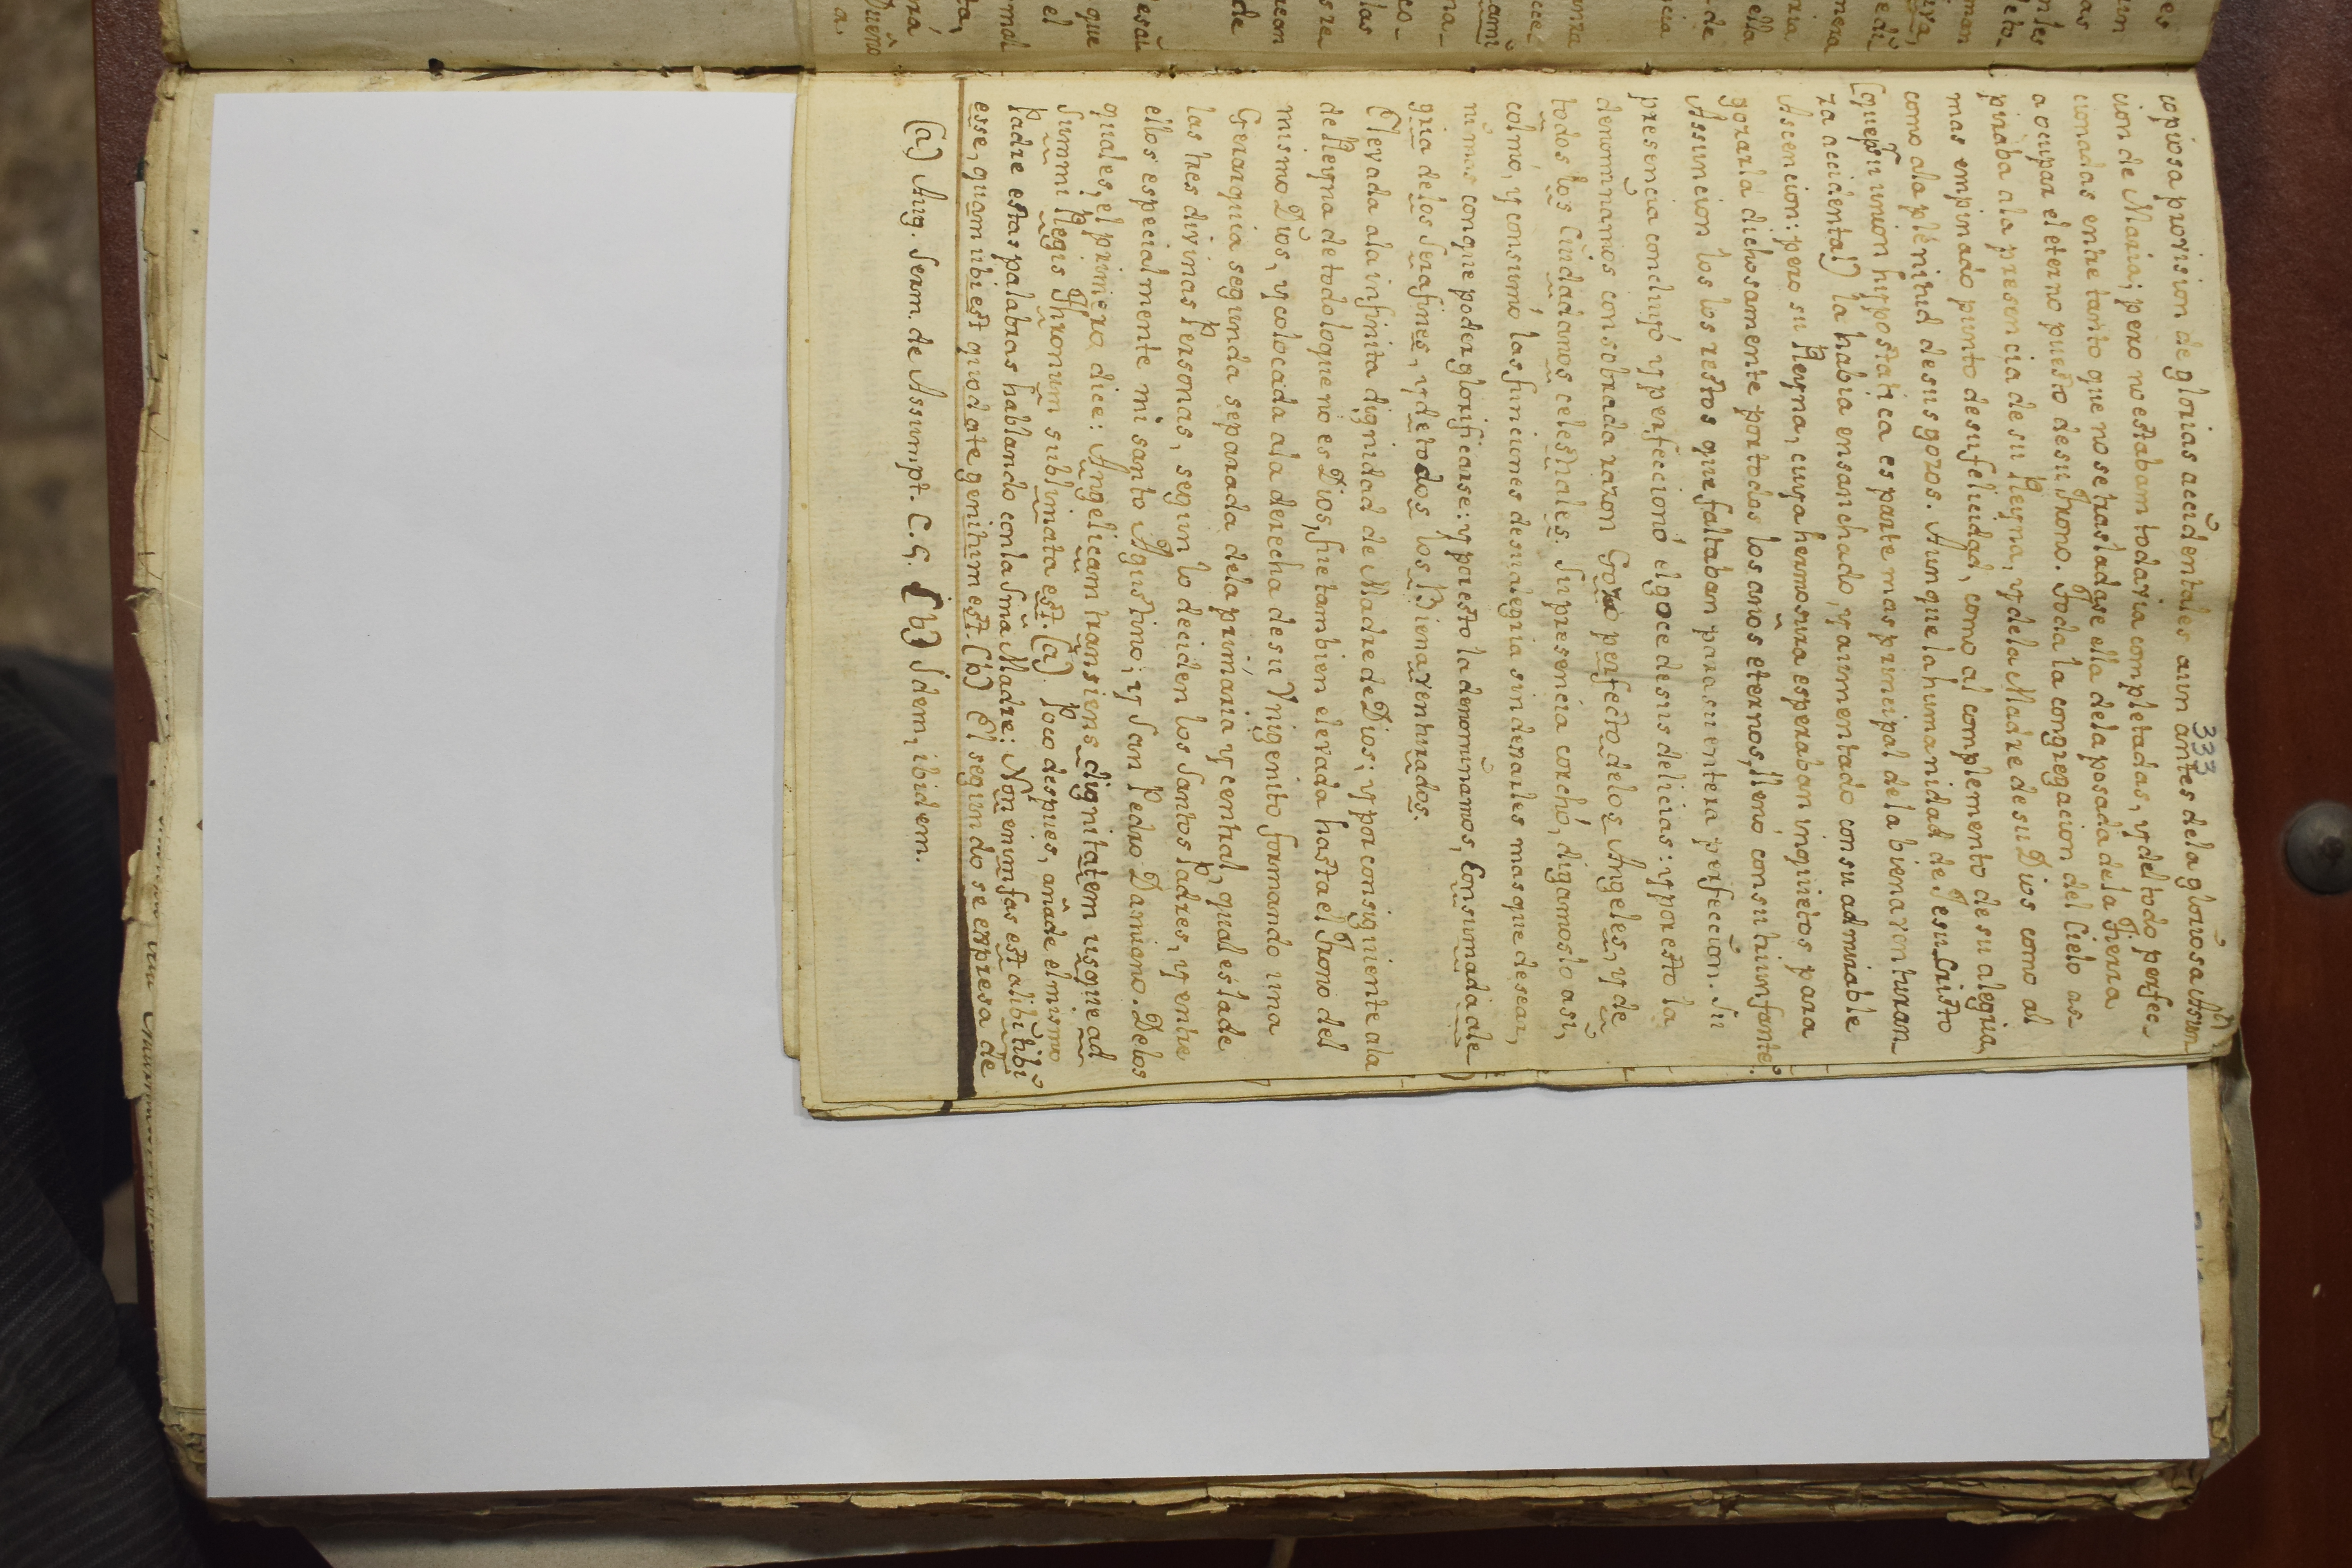 333
copiosa provision de glorias accidentales aun antes dela gloriosa Asum-
cion de Maria; pero no estaban todavia completadas, y del todo perfec-
cionadas entre tanto que no se trasladase ella dela posada dela Tierra
a ocupar el eterno puesto de su Trono. Toda la congregacion del Cielo as-
piraba ala presencia de su Reyna, y dela Madre de su Dios como al
mas empinado punto de su felicidad, como al complemento de su alegria,
como ala plenitud de sus gozos. Aunque la humanidad de Jesu Cristo
(que pr su union hypostatica es parte mas principal dela bienaventuran-
za accidental) la habia ensanchado, y aumentado con su admirable
Ascencion: pero su Reyna, cuya hermosura esperaban inquietos para
gozarla dichosamente por todos los años eternos, llenó con su triunfante
Assuncion los los restos que faltaban para su entera perfeccion. Su
presencia concluyó y perfeccionó el goce de sus delicias: y por esto la
denominamos con sobrada razon Gozo perfecto delos Angeles, y de
todos los Ciudadanos celestiales. Su presencia corchó, digamoslo asi,
colmó, y consumó las funciones de su alegria sin dexarles mas que desear,
ni mas con que poder glorificarse: y por esto la denominamos, Consumada ale
gria delos Serafines, y de todos los Bienaventurados.
Elevada ala infinita dignidad de Madre de Dios; y por consiguiente ala
de Reyna de todo lo que no es Dios, fue tambien elevada hasta el Trono del
mismo Dios, y colocada ala derecha de su Unigenito formando una
Gerarquia segunda separada dela primaria y central, qual es la de
las tres divinas Personas, segun lo deciden los Santos Padres, y entre
ellos especialmente mi santo Agustino; y San Pedro Damiano. Delos
quales, el primero, dice: Angelicam transiens dignitatem usque ad
Summi Regis Thronum sublimata est. (a) Poco despues, añade el mismo
Padre estas palabras hablando con la Sma Madre: Non enim fas est alibi tibi
esse, quam ubi est quod a te genitum est. (b) El segundo se expresa de
(a) Aug. Serm. de Assumpt. C.G. (b) Idem, ibidem.